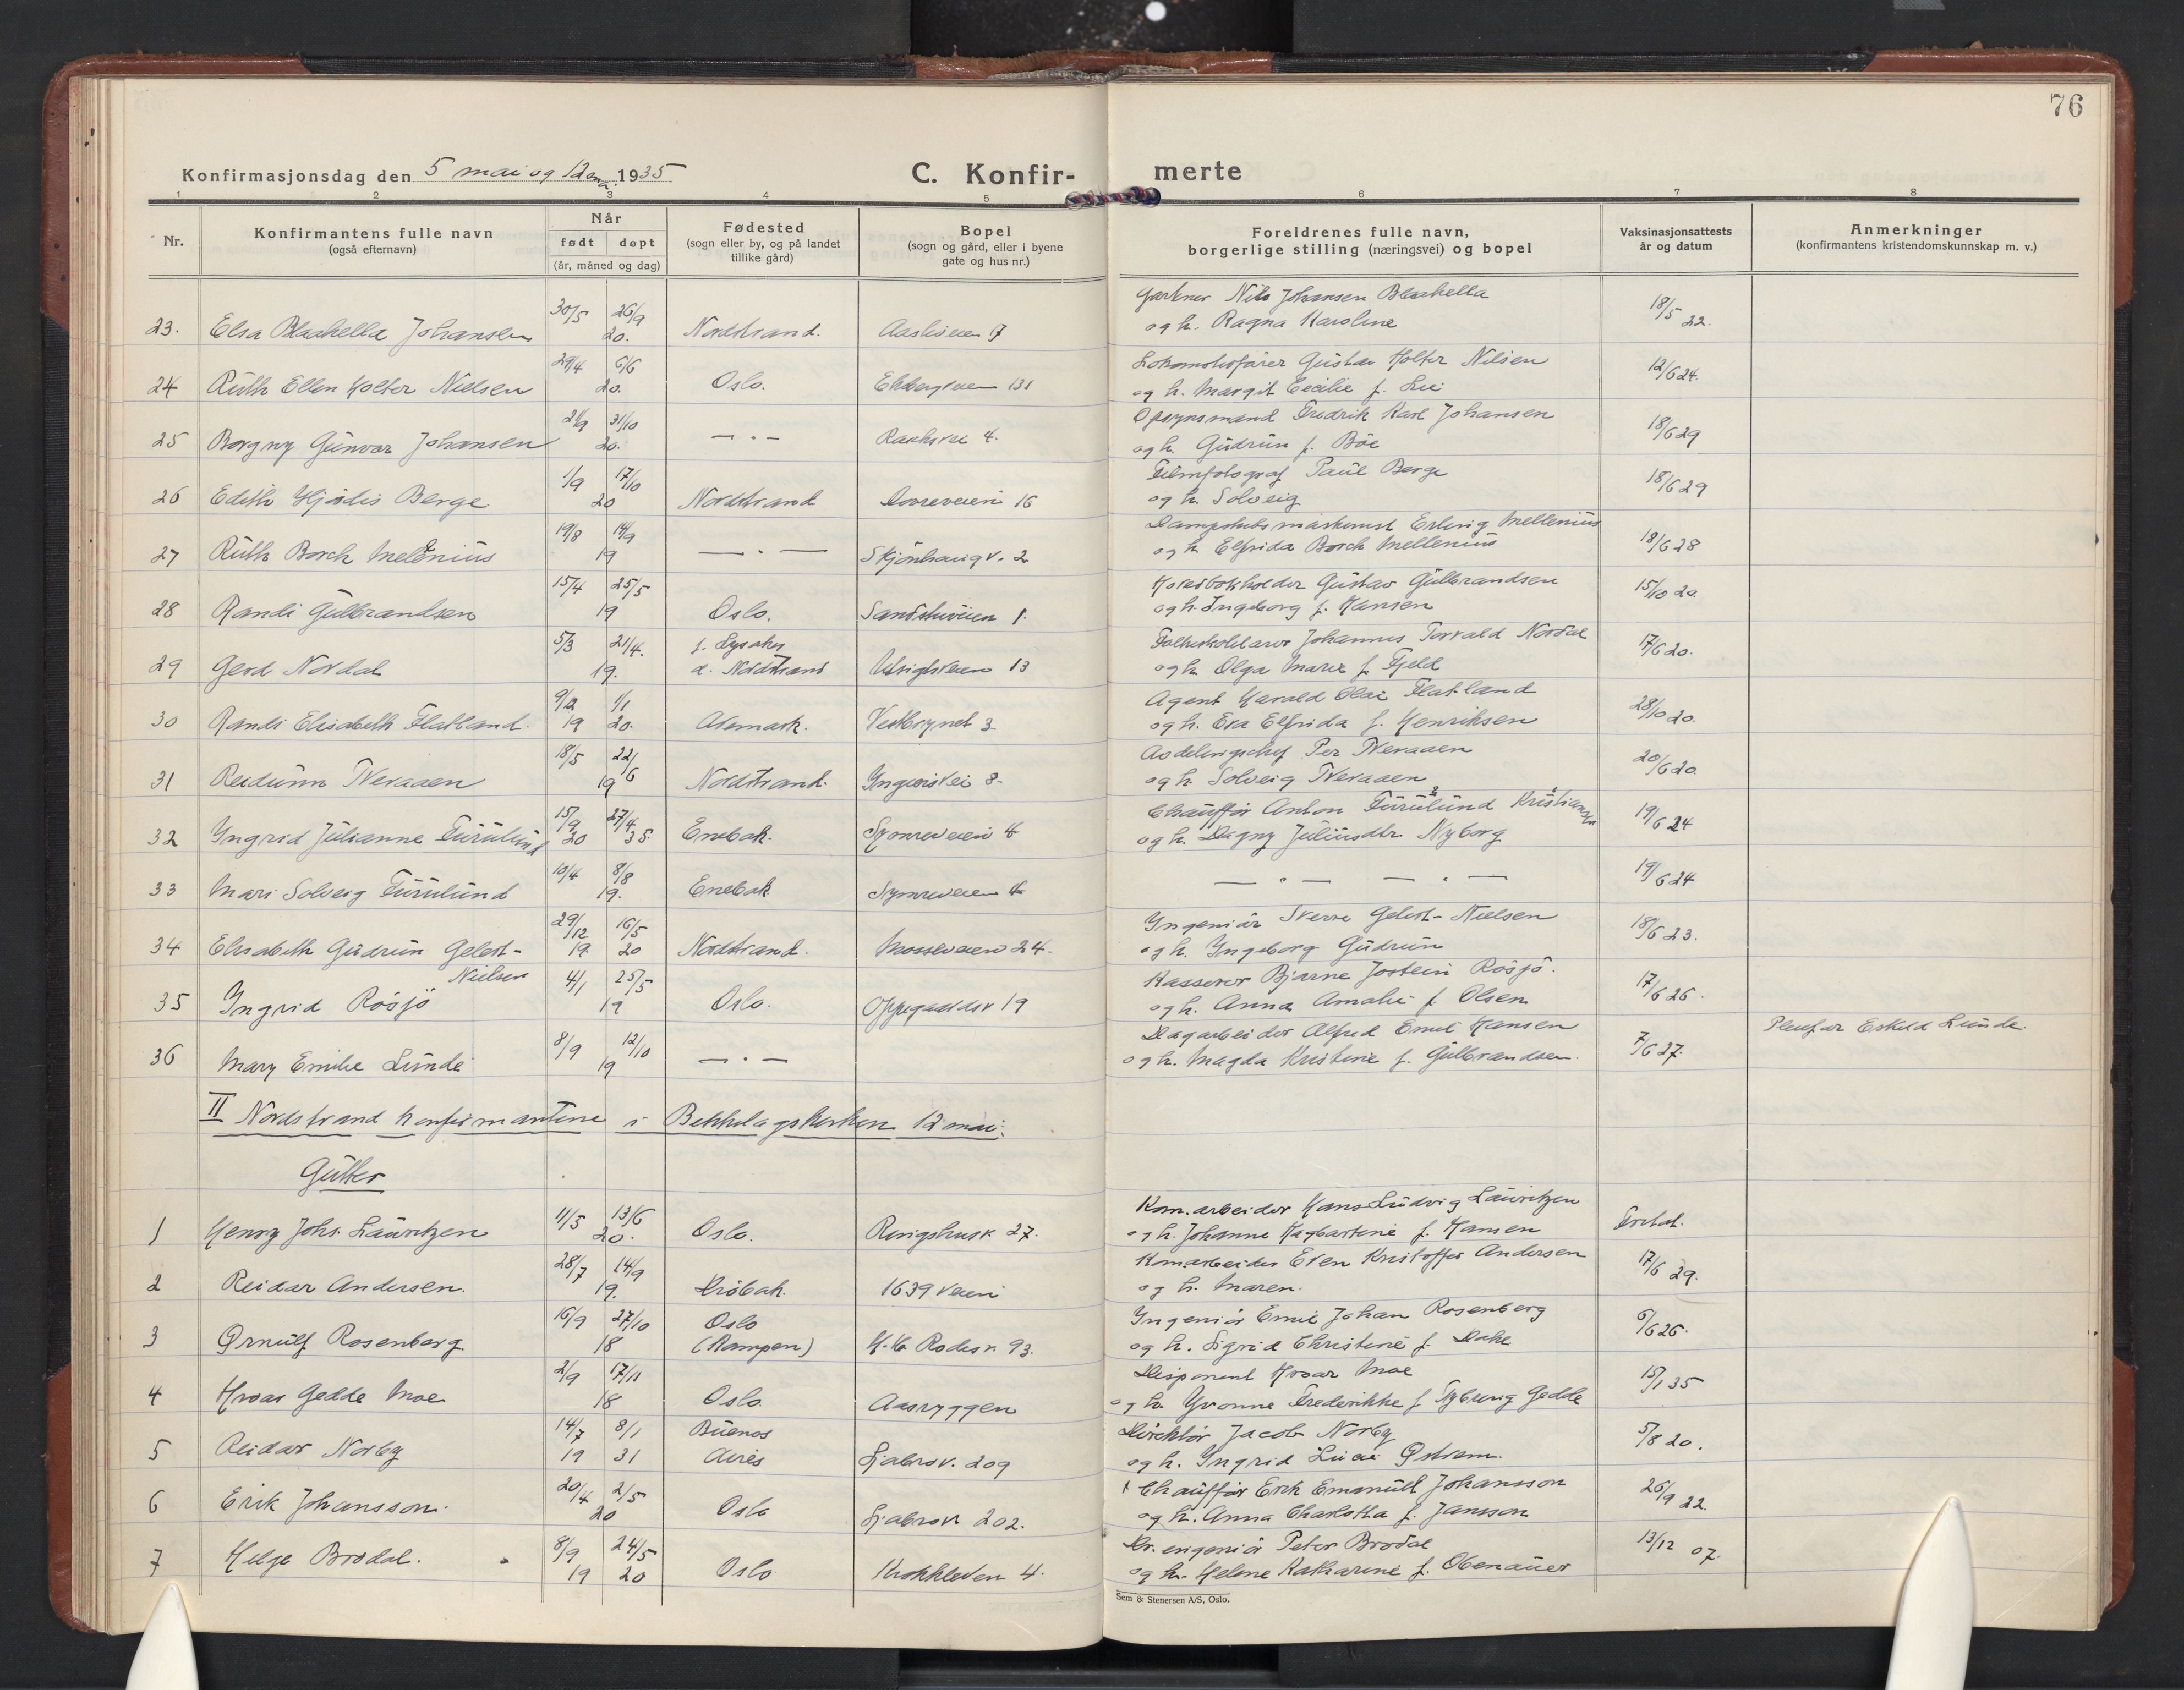 76
Konfirmasjonsdag den 5 mai og 12 mai 1935
C. Konfir-merte
1 2 3 4 5 6 7 8
Nr.
Konfirmantens fulle navn
(også efternavn)
Når
født døpt
(år, måned og dag)
Fødested
(sogn eller by, og på landet
tillike gård)
Bopel
(sogn og gård, eller i byene
gate og hus nr.)
Foreldrenes fulle navn,
borgerlige stilling (næringsvei) og bopel
Vaksinasjonsattests
år og datum
Anmerkninger
(konfirmantens kristendomskunnskap m. v.)
23. Elsa Blakkella Johansen 30/5 26/9 20. Nordstrand. 7 Gartner Nils Johansen Blakkella 18/5 22.
og h. Ragna Karoline
24 Ruth Ellen Holter Nielsen 29/4 6/6 20. Oslo. Ekbergveien 131 Lokomotivfører Gustav Holter Nilsen 12/6 24.
og h. Margit Cecilie f. Lie
25 Borgny Gunvor Johansen 21/9 31/10 20. — " — 4. Opsynsmand Fredrik Karl Johansen 18/6 29
og h. Gudrun f. Böe
26 Edith Hjördis Berge 1/9 17/10 20 Nordstrand Dovreveien 16 Filmfotograf Paul Berge 18/6 29
og h. Solveig
27 Ruth Borch Mellenius 19/8 14/9 19 — " — Skjönhaugv. 2 Dampskibsmaskinist Erling Mellenius 18/6 28
og h. Elfrida Borch Mellenius
28 Randi Gulbrandsen 15/4 25/5 19 Oslo. Sandstuveien 1. Hovedbokholder Gustav Gulbrandsen 15/10 20.
og h. Ingeborg f. Hansen
29 Gerd Nordal 5/3 21/4. 19. f. Lysaker d. Nordstrand Utsigtsveien 13 Folkeskolelærer Johannes Torvald Nordal 17/6 20.
og h. Olga Marie f. Fjeld
30 Randi Elisabeth Flatland. 9/12 19 1/1 20. Aremark. Vestbrynet 3 Agent Harald Olai Flatland 28/10 20.
og h. Eva Elfrida f. Henriksen
31 Reidunn Tveraaen 18/5 22/6 19 Nordstrand. Ingiersvei 8. Avdelingschef Per Tveraaen 20/6 20.
og h. Solveig Tveraaen
32 Ingrid Julianne Furulund 15/9 20 27/4 35 Enebak. Symreveien 4 Chauffør Anton Furulund Kristiansen 19/6 24
og h. Dagny Juliusdtr. Nyborg
33 Mari Solveig Furulund 10/4 8/8 19. Enebak Symreveien 4 — " — — " — 19/6 24
34 Elisabeth Gudrun Gelert-Nielsen 29/12 19 16/5 20 Nordstrand. Mosseveien 24. Ingeniör Sverre Gelert-Nielsen 18/6 23.
og h. Ingeborg Gudrun
35 Ingrid Rösjö 4/1 25/5 19 Oslo. Oppegaardsv 19 Kasserer Bjarne Jostein Rösjö. 17/6 26.
og h. Anna Amalie f. Olsen
36 Mary Emilie Lunde 8/9 12/10 19 — " — Dagarbeider Alfred Emil Hansen 7/6 27. Pleiefar Eskild Lunde.
og h. Magda Kristine f. Gulbrandsen.
II Nordstrand konfirmantene i Bekkelagskirken 12 mai.
Gutter
1 Henry Johs. Lauritzen 11/5 13/6 20. Oslo. Ringshusv 27. Kom. arbeider Hans Ludvig Lauritzen
og h. Johanne Hagbartine f. Hansen
2 Reidar Andersen. 28/7 14/9 19. Dröbak. 1639 veien Kom. arbeider Even Kristoffer Andersen 17/6 29.
og h. Maren.
3 Ørnulf Rosenberg 16/9 27/10 18 Oslo (Kampen) 93. Ingeniör Emil Johan Rosenberg 6/6 26.
og h. Sigrid Christine f. Dahl
4 Hroar Gedde Moe 2/9 17/11 18 Oslo. Aasryggen Disponent Hroar Moe 15/1 35
og h. Yvonne Frederikke f. Tybring Gedde
5 Reidar Norby 14/7 19 8/1 31 Buenos Aires Ljabrov. 209 Direktör Jacob Norby 5/8 20.
og h. Ingrid Östrem.
6 Erik Johansson. 20/4 2/5 20 Oslo Ljabrov. 202. Chauffør Erik Emanuel Johansson 26/9 22.
og h. Anna Charlotta f. Jansson
7 Helge Brodal. 8/9 19 24/5 20 Oslo Krokkleven 4. Dr. ingeniör Peter Brodal 13/12 07.
og h. Helene Katharine f. Obenauer
Sem & Stenersen A/S, Oslo.